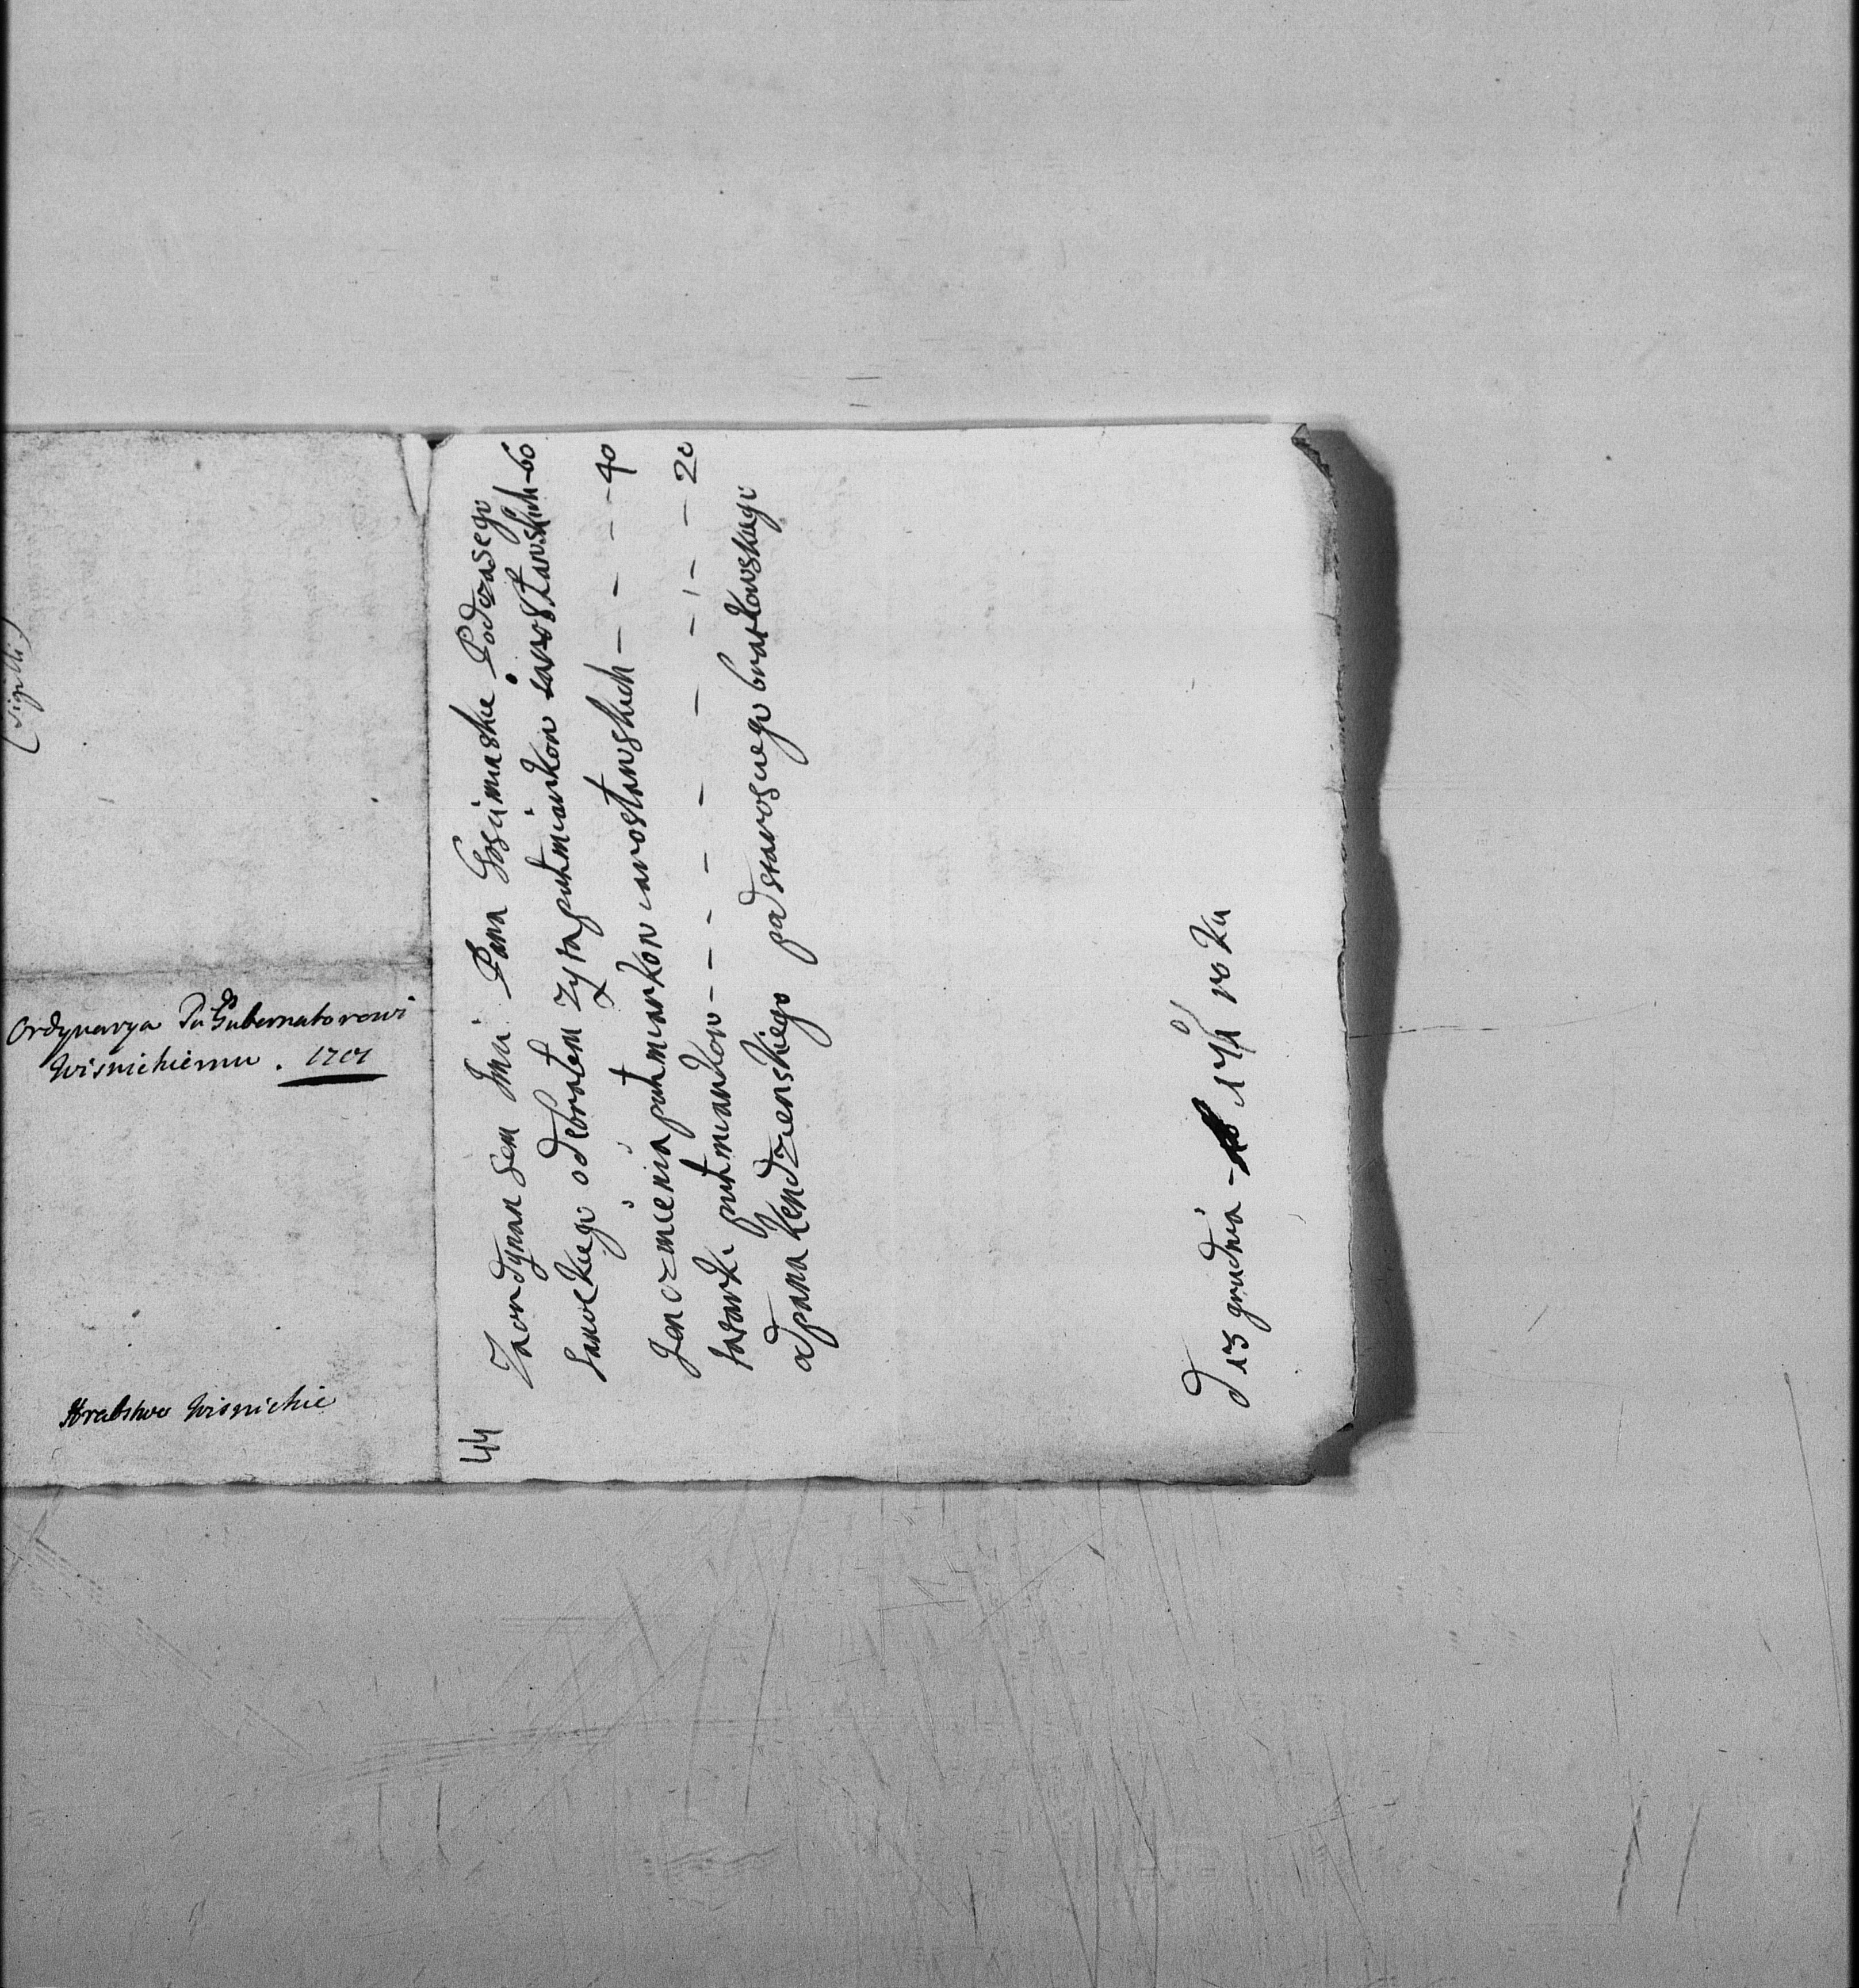 (sigilli)
Ordynarya Pu Gubernatorowi
Wisnickiemu . 1701
Hrabstwo Wisnickie
44
Zaordynansem Jmci Pana Gosciminskie Podczasego
sanockiego odebrałem zyta pułmiarkow iarosławskich 60
Jenczmienia pułmiarkow iarosławskich — — — — 40
tatarki pułmiarkow — — — — — — — — — 20
od pana Kendzienskiego podstarosciego bratkowskiego
D 13 grudnia roku